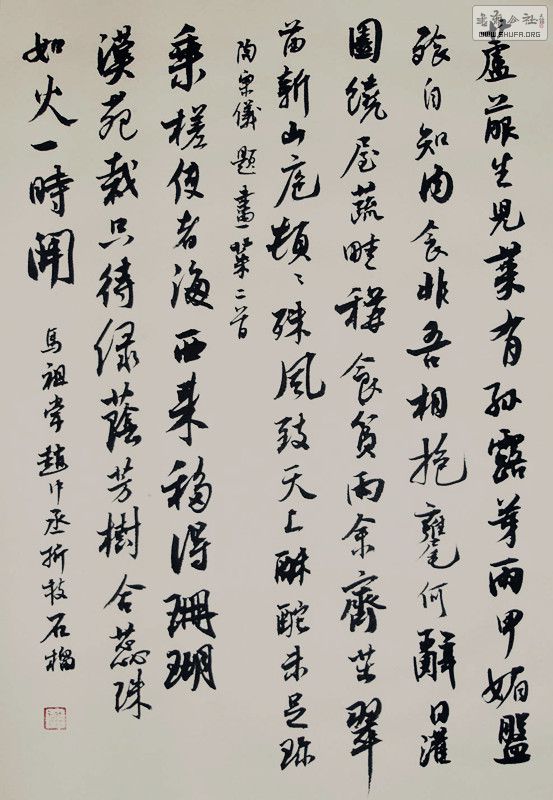 蘆菔生兒菜有孫露芽雨甲媚盤
飧自知肉食非吾相抱甕何辭日灌
園繞屋蔬畦稱食貧雨余薺苣翠
苗新山庖頓〻殊風致天上酥酡未足珍
陶宗儀題畫菜二首
乘槎使者海西來移得珊瑚
漢苑栽只待綠蔭芳樹合蕊珠
如火一時開
馬祖常趙中丞折枝石榴
WWW.SHUFA.ORG